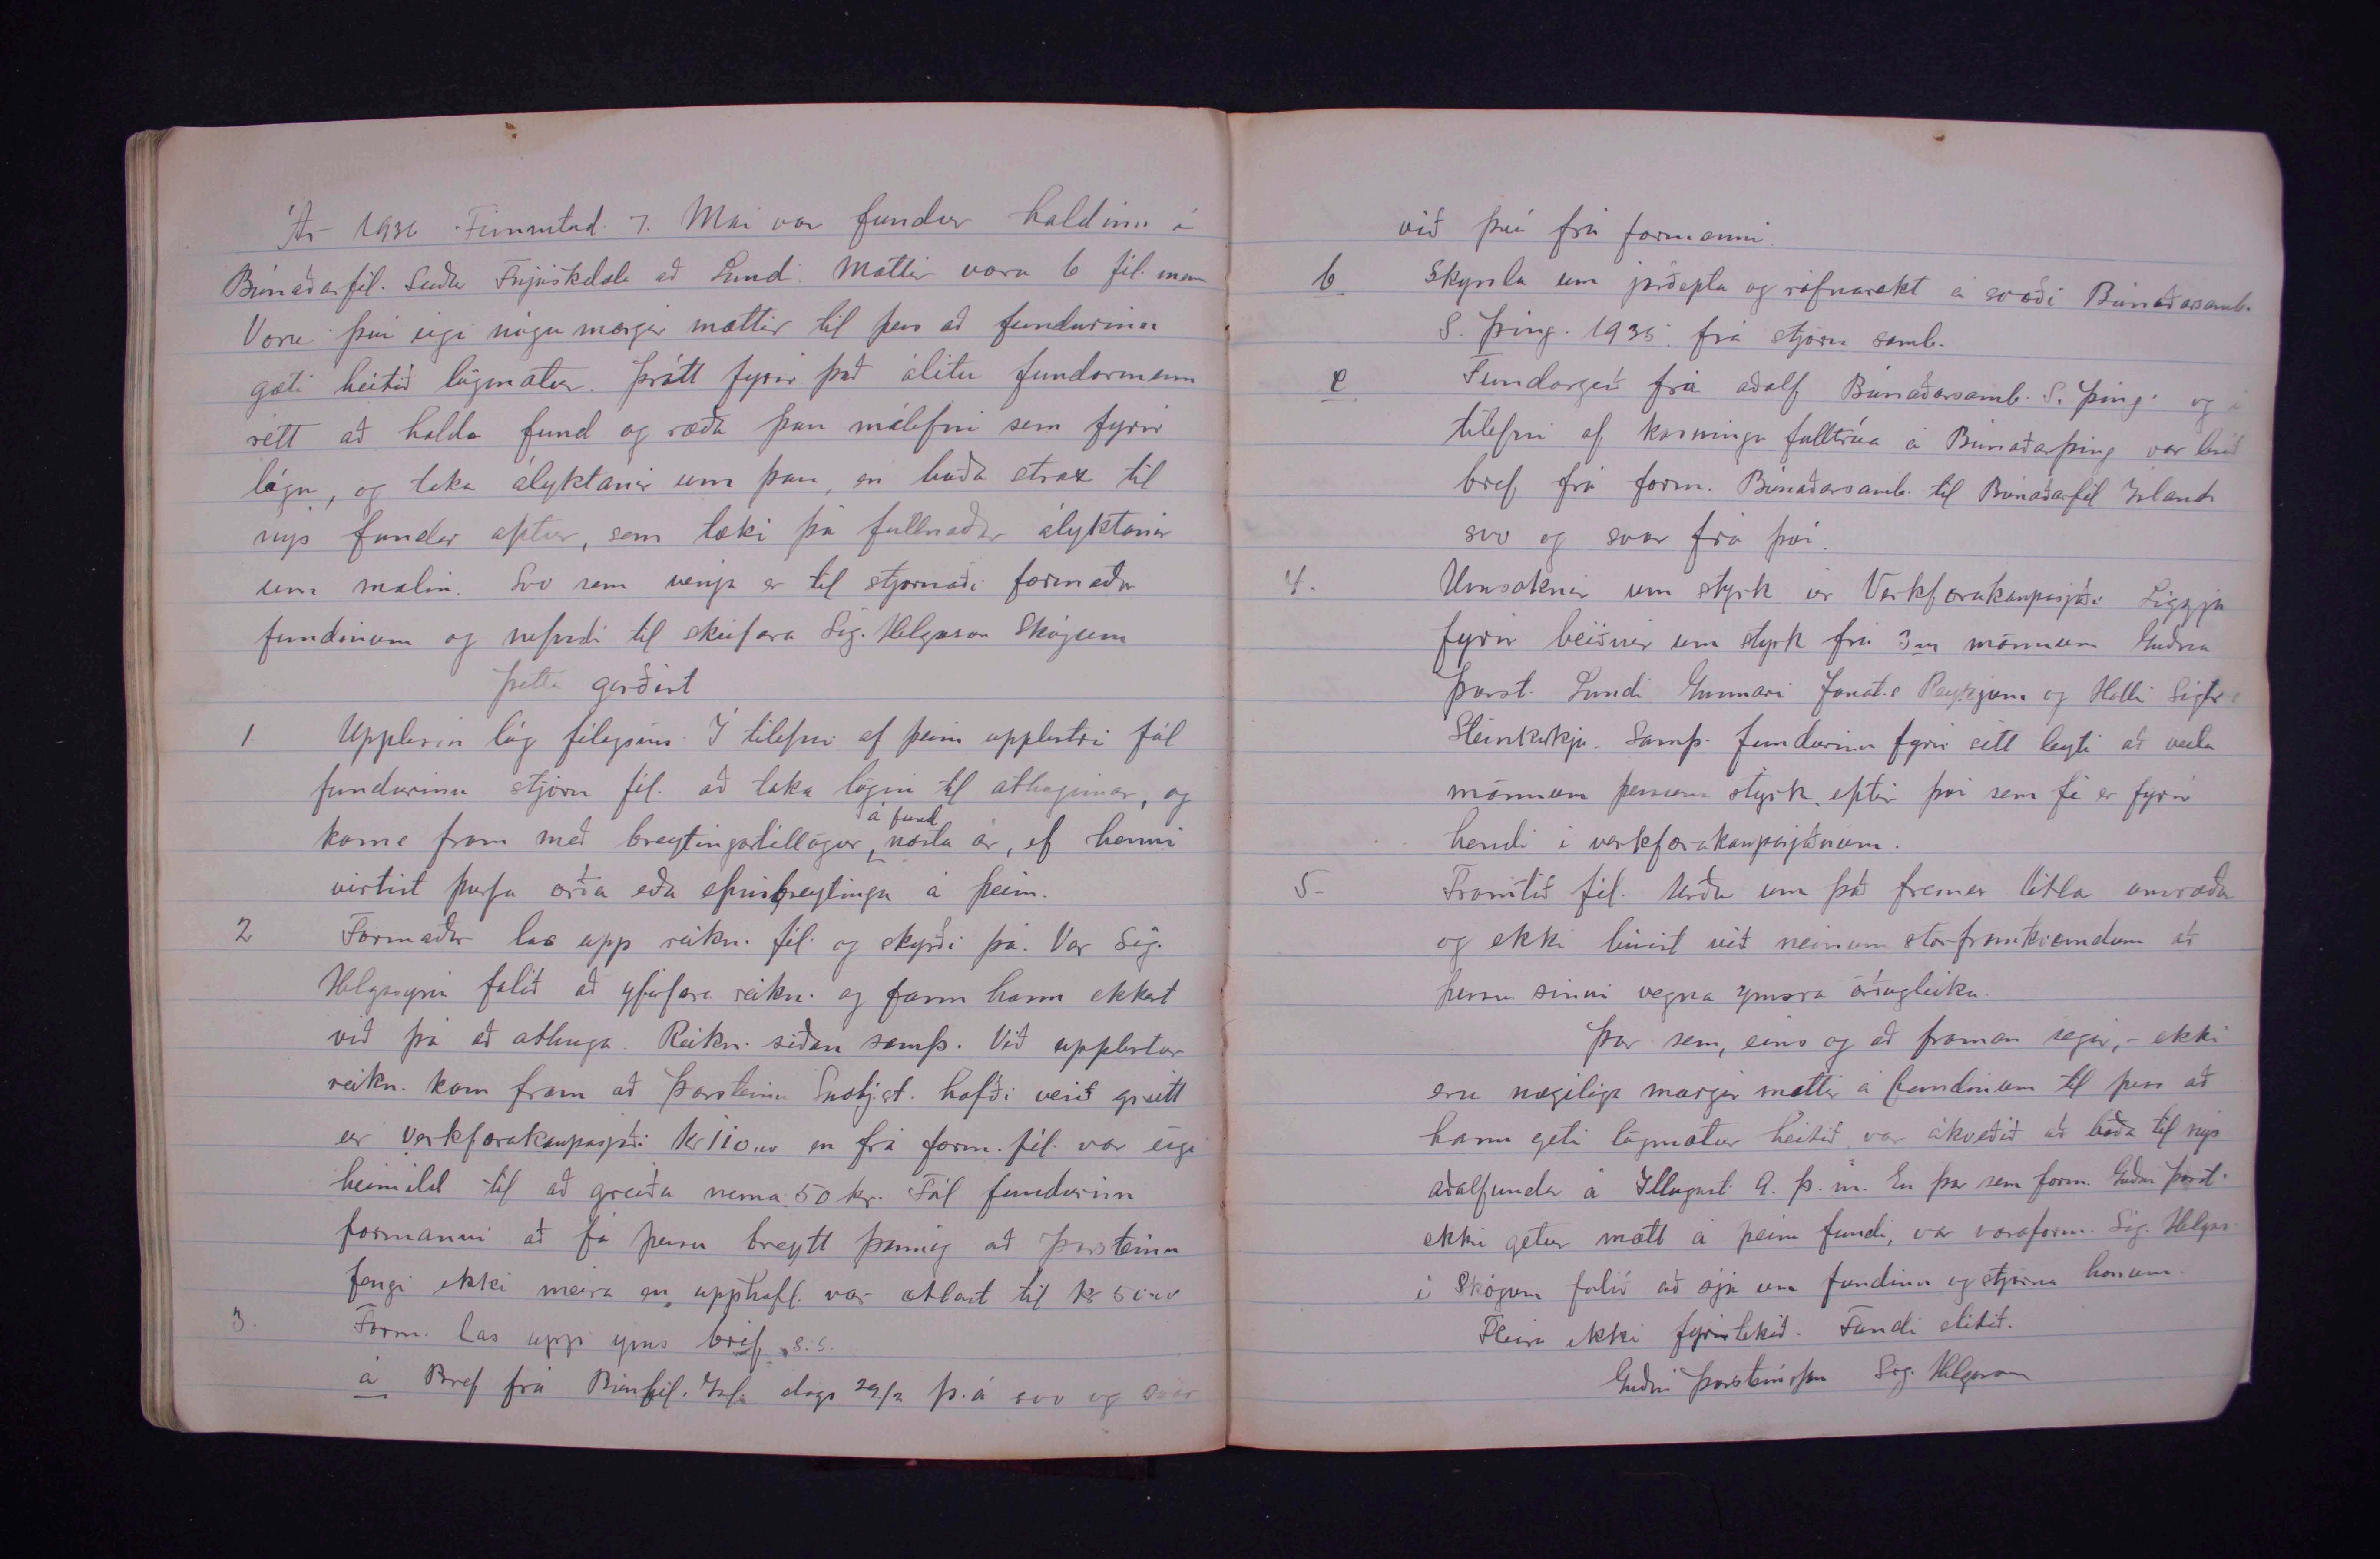 Ár 1936 Fimmtud. 7. Mai var fundur haldinn á
Búnaðarfél. Suður Fnjóskdæla að Lundi. Mættir voru 6 fél. menn
Voru því eigi nógu margir mættir til þess að fundurinn
gæti heitið lögmætur. Þrátt fyrir það álitu fundarmenn
rétt að halda fund og ræða þau málefni sem fyrir
lágu, og taka ályktanir um þau, en boða strax til
nýs fundar aftur, sem tæki þá fullnaðar ályktanir
um málin. Svo sem venja er til stjórnaði formaður
fundinum og nefndi til skrifara Sig. Helgason Skógum
Þetta gerðist
1. Upplesin lög félagsins. Í tilefni af þeim upplestri fól
fundurinn stjórn fél. að taka lögin til athugunar, og
koma fram með breytingartillögur á fund næsta ár, ef henni
virtist þurfa orða eða efnisbreytinga á þeim.
2 Formaður las upp reikn. fél. og skýrði þá. Var Sig.
Helgasyni falið að yfirfara reikn. og fann hann ekkert
við þá að athuga. Reikn. síðan samþ. Við upplestur
reikn. kom fram að Þorsteinn Indbj.st. hafði verið greitt
úr Verkfærakaupasjóði kr 110.00 en frá form. fél. var eigi
heimild til að greiða nema 50 kr. Fól fundurinn
formanni að fá þessu breytt þannig að Þorsteinn
fengi ekki meira en upphafl. var ætlast til kr 50.00
3. Form. las upp ýms bréf s.s.
a Bréf frá Búnfél. Ísl. dags 29/2 þ.á svo og svar
við því frá formanni.
b Skýrsla um jarðepla og rófnarækt á svæði Búnaðarsamb.
S. Þing. 1935. frá stjórn samb.
c Fundargerð frá aðalf. Búnaðarsamb. S. Þing. og í
tilefni af kosningu fulltrúa á Búnaðarþing var lesið
bréf frá form. Búnaðarsamb. til Búnaðarfél Íslands
svo og svar frá því.
4. Umsóknir um styrk úr Verkfærakaupasjóði Liggja
fyrir beiðnir um styrk frá 3m mönnum Guðna
Þorst. Lundi Gunnari Jónat.s Reykjum og Halli Sigtr.s
Steinkirkju. Samþ. fundurinn fyrir sitt leyti að veita
mönnum þessum styrk eftir því sem fé er fyrir
hendi í verkfærakaupasjóðnum.
5- Framtíð fél. Urðu um það fremur litla umræða
og ekki búist við neinum stórframkvæmdum að
þessu sinni vegna ýmsra örðugleika.
Þar sem, eins og að framan segir, - ekki
eru nægilega margir mættir á fundinum til þess að
hann geti lögmætur heitið var ákveðið að boða til nýs
aðalfundar á Illugast. 9. þ.m. En þar sem form. Guðni Þorst.
ekki getur mætt á þeim fundi, var varaform. Sig. Helgas.
í Skógum falið að sjá um fundinn og stjórna honum.
Fleira ekki fyrirtekið. Fundi slitið.
Guðni Þorsteinsson Sig. Helgason